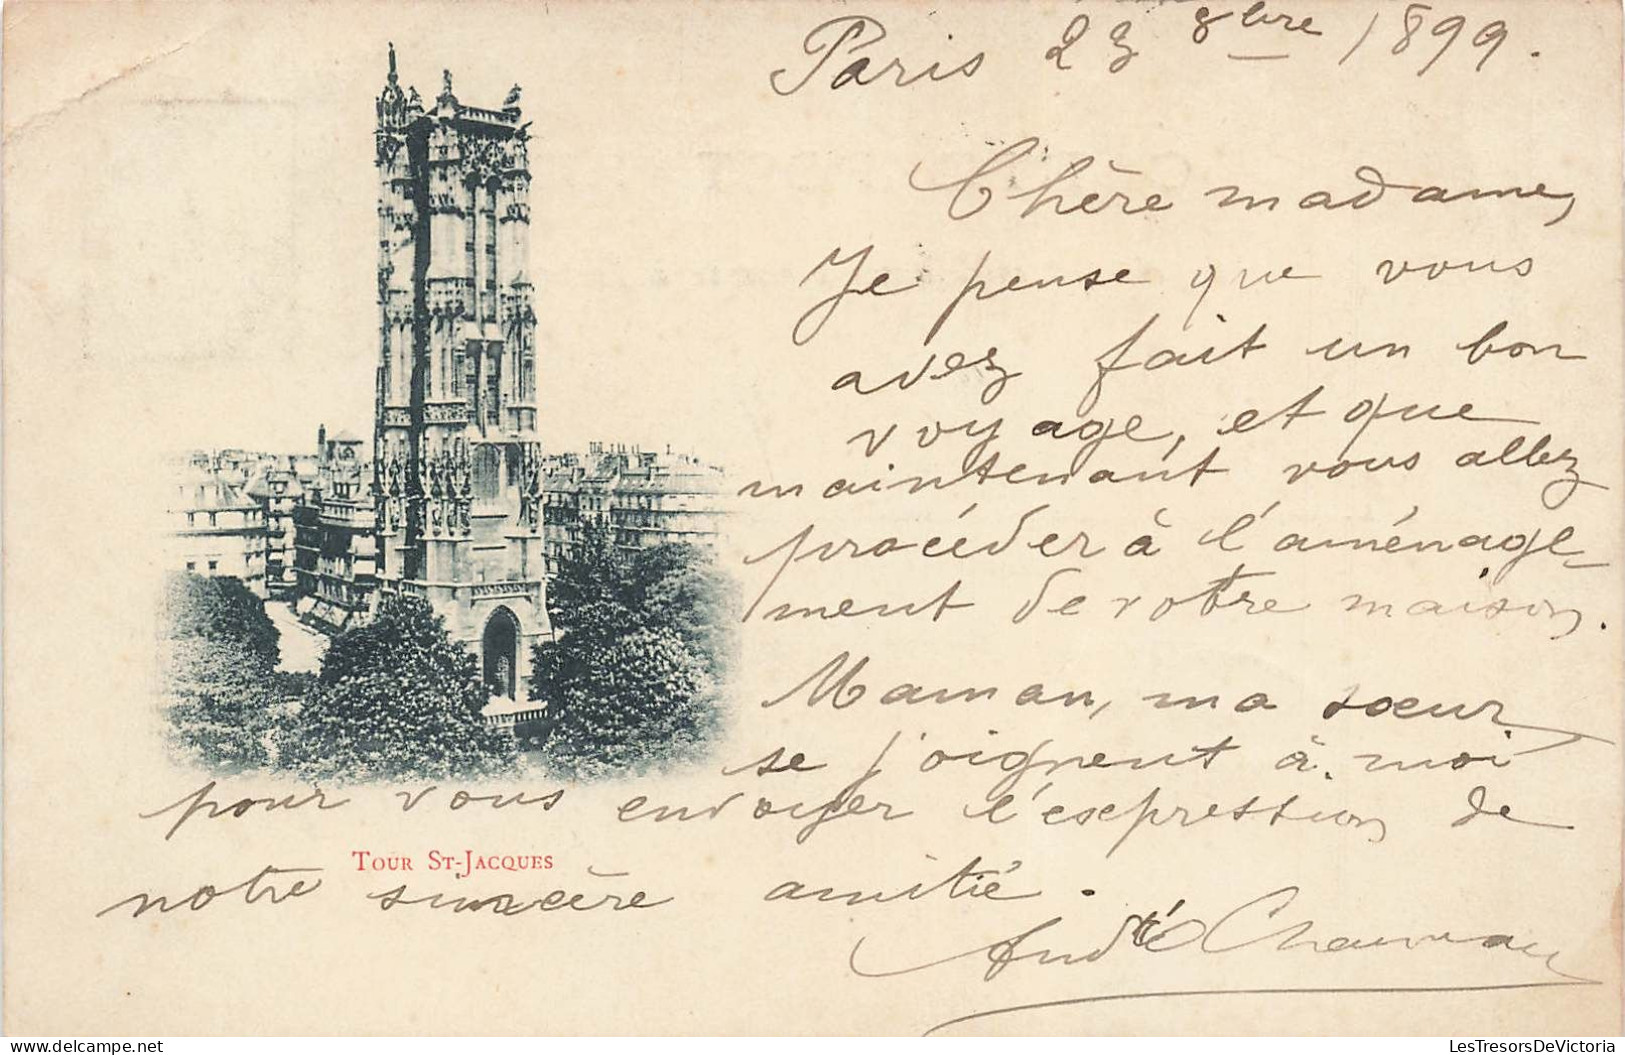 Paris 23 8bre 1899.
Chère madame,
Je pense que vous
avez fait un bon
voyage, et que
maintenant vous allez
procéder à l'aménage-
ment de votre maison.
Maman, ma sœur
se joignent à moi
pour vous envoyer l'expression de
Tour St-Jacques
notre sincère amitié.
André
LesTresorsDeVictoria